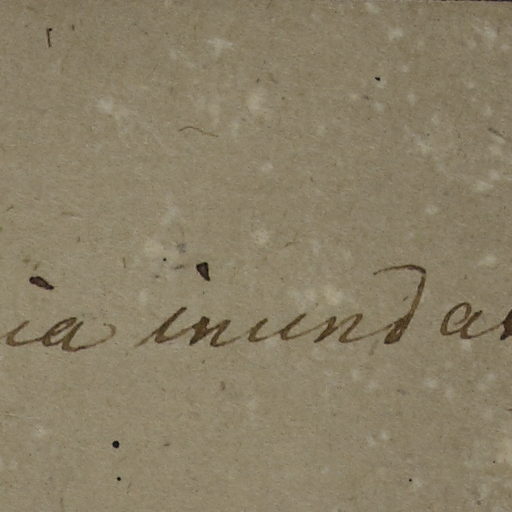 ia inundar